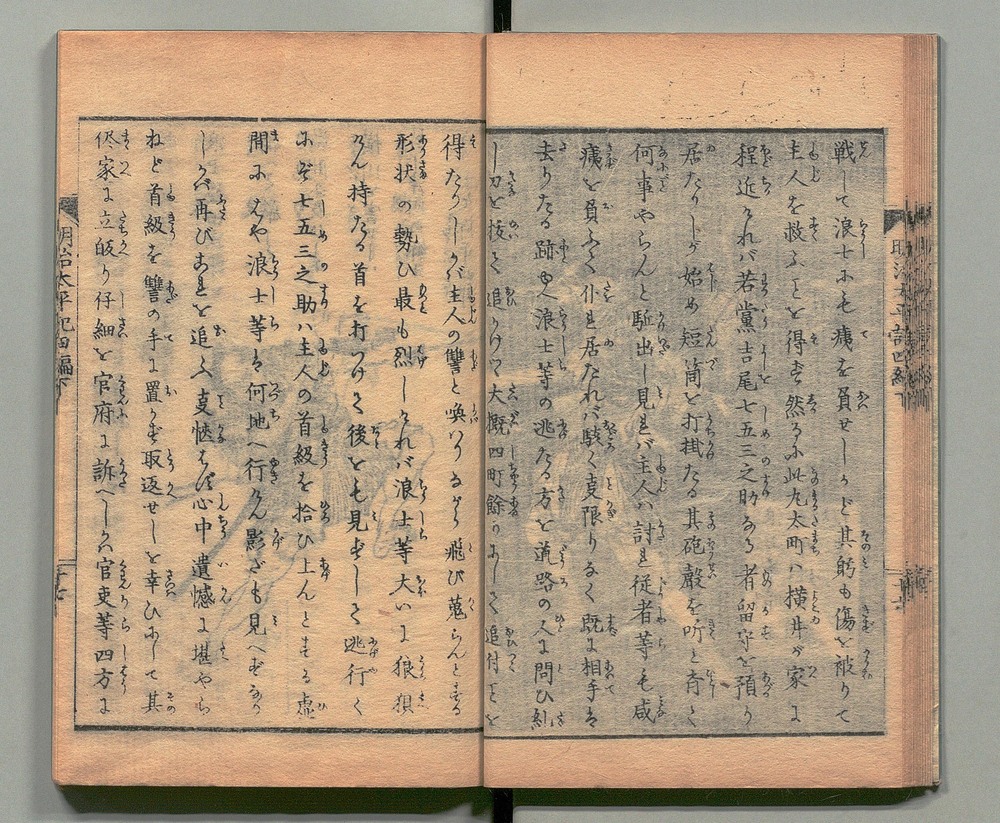 戦して浪士にも痍を負せしかど其躬も傷を被りて
主人を救ふことを得ず然るに此丸太町ハ横井が家に
程近けれバ若黨吉尾七五三之助なる者留守を預り
居たりしが始め短筒を打掛たる其砲聲を听と斉く
何事やらんと駈出し見れバ主人ハ討れ従者等も咸
痍を負ふて仆れ居たれバ駭く支限りなく既に相手は
去りたる跡ゆへ浪士等の逃たる方を道路の人に問ひ糺
し刀を抜て追かけて大概四町餘りにして追付ことを
得たりしかバ主人の讐と喚はりながら飛び蒐らんとする
形状の勢ひ最も烈しけれバ浪士等大いに狼狽
けん持たる首を打つけて後をも見ずして逃行く
にぞ七五三之助ハ主人の首級を拾ひ上んとする虚
間にはや浪士等は何地へ行けん影だも見へずなり
しかバ再びあとを追ふ支愜はず心中遺憾に堪やら
ねど首級を讐の手に置かず取返せしを幸ひにして其
侭家に立皈り仔細を官府に訴へしかバ官吏等四方に
明治太平記四編下
明治太平記四編下